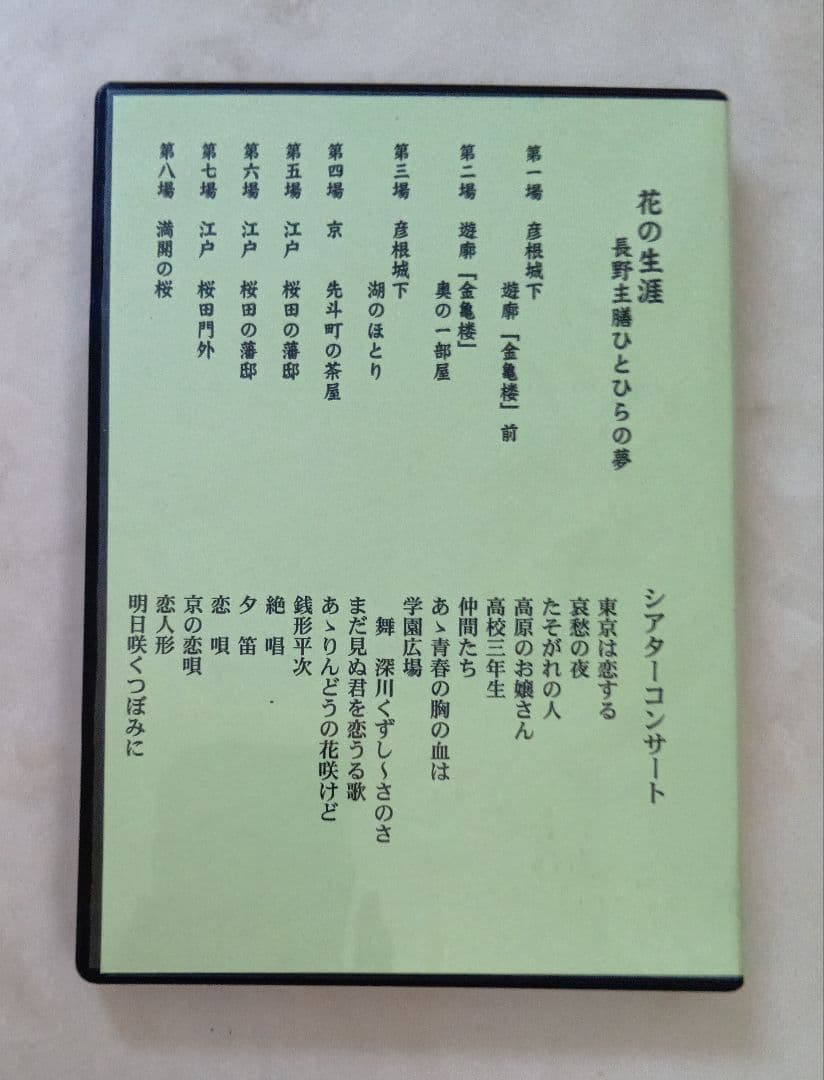 花の生涯
長野主膳ひとひらの夢
第一場　彦根城下
遊廓「金亀楼」前
第二場　遊廓「金亀楼」
奥の一部屋
第三場　彦根城下
湖のほとり
第四場　京　先斗町の茶屋
第五場　江戸　桜田の藩邸
第六場　江戸　桜田の藩邸
第七場　江戸　桜田門外
第八場　満開の桜
シアターコンサート
東京は恋する
哀愁の夜
たそがれの人
高原のお嬢さん
高校三年生
仲間たち
あゝ青春の胸の血は
学園広場
舞　深川くずし～さのさ
まだ見ぬ君を恋うる歌
あゝりんどうの花咲けど
銭形平次
絶唱
夕笛
恋唄
京の恋唄
恋人形
明日咲くつぼみに